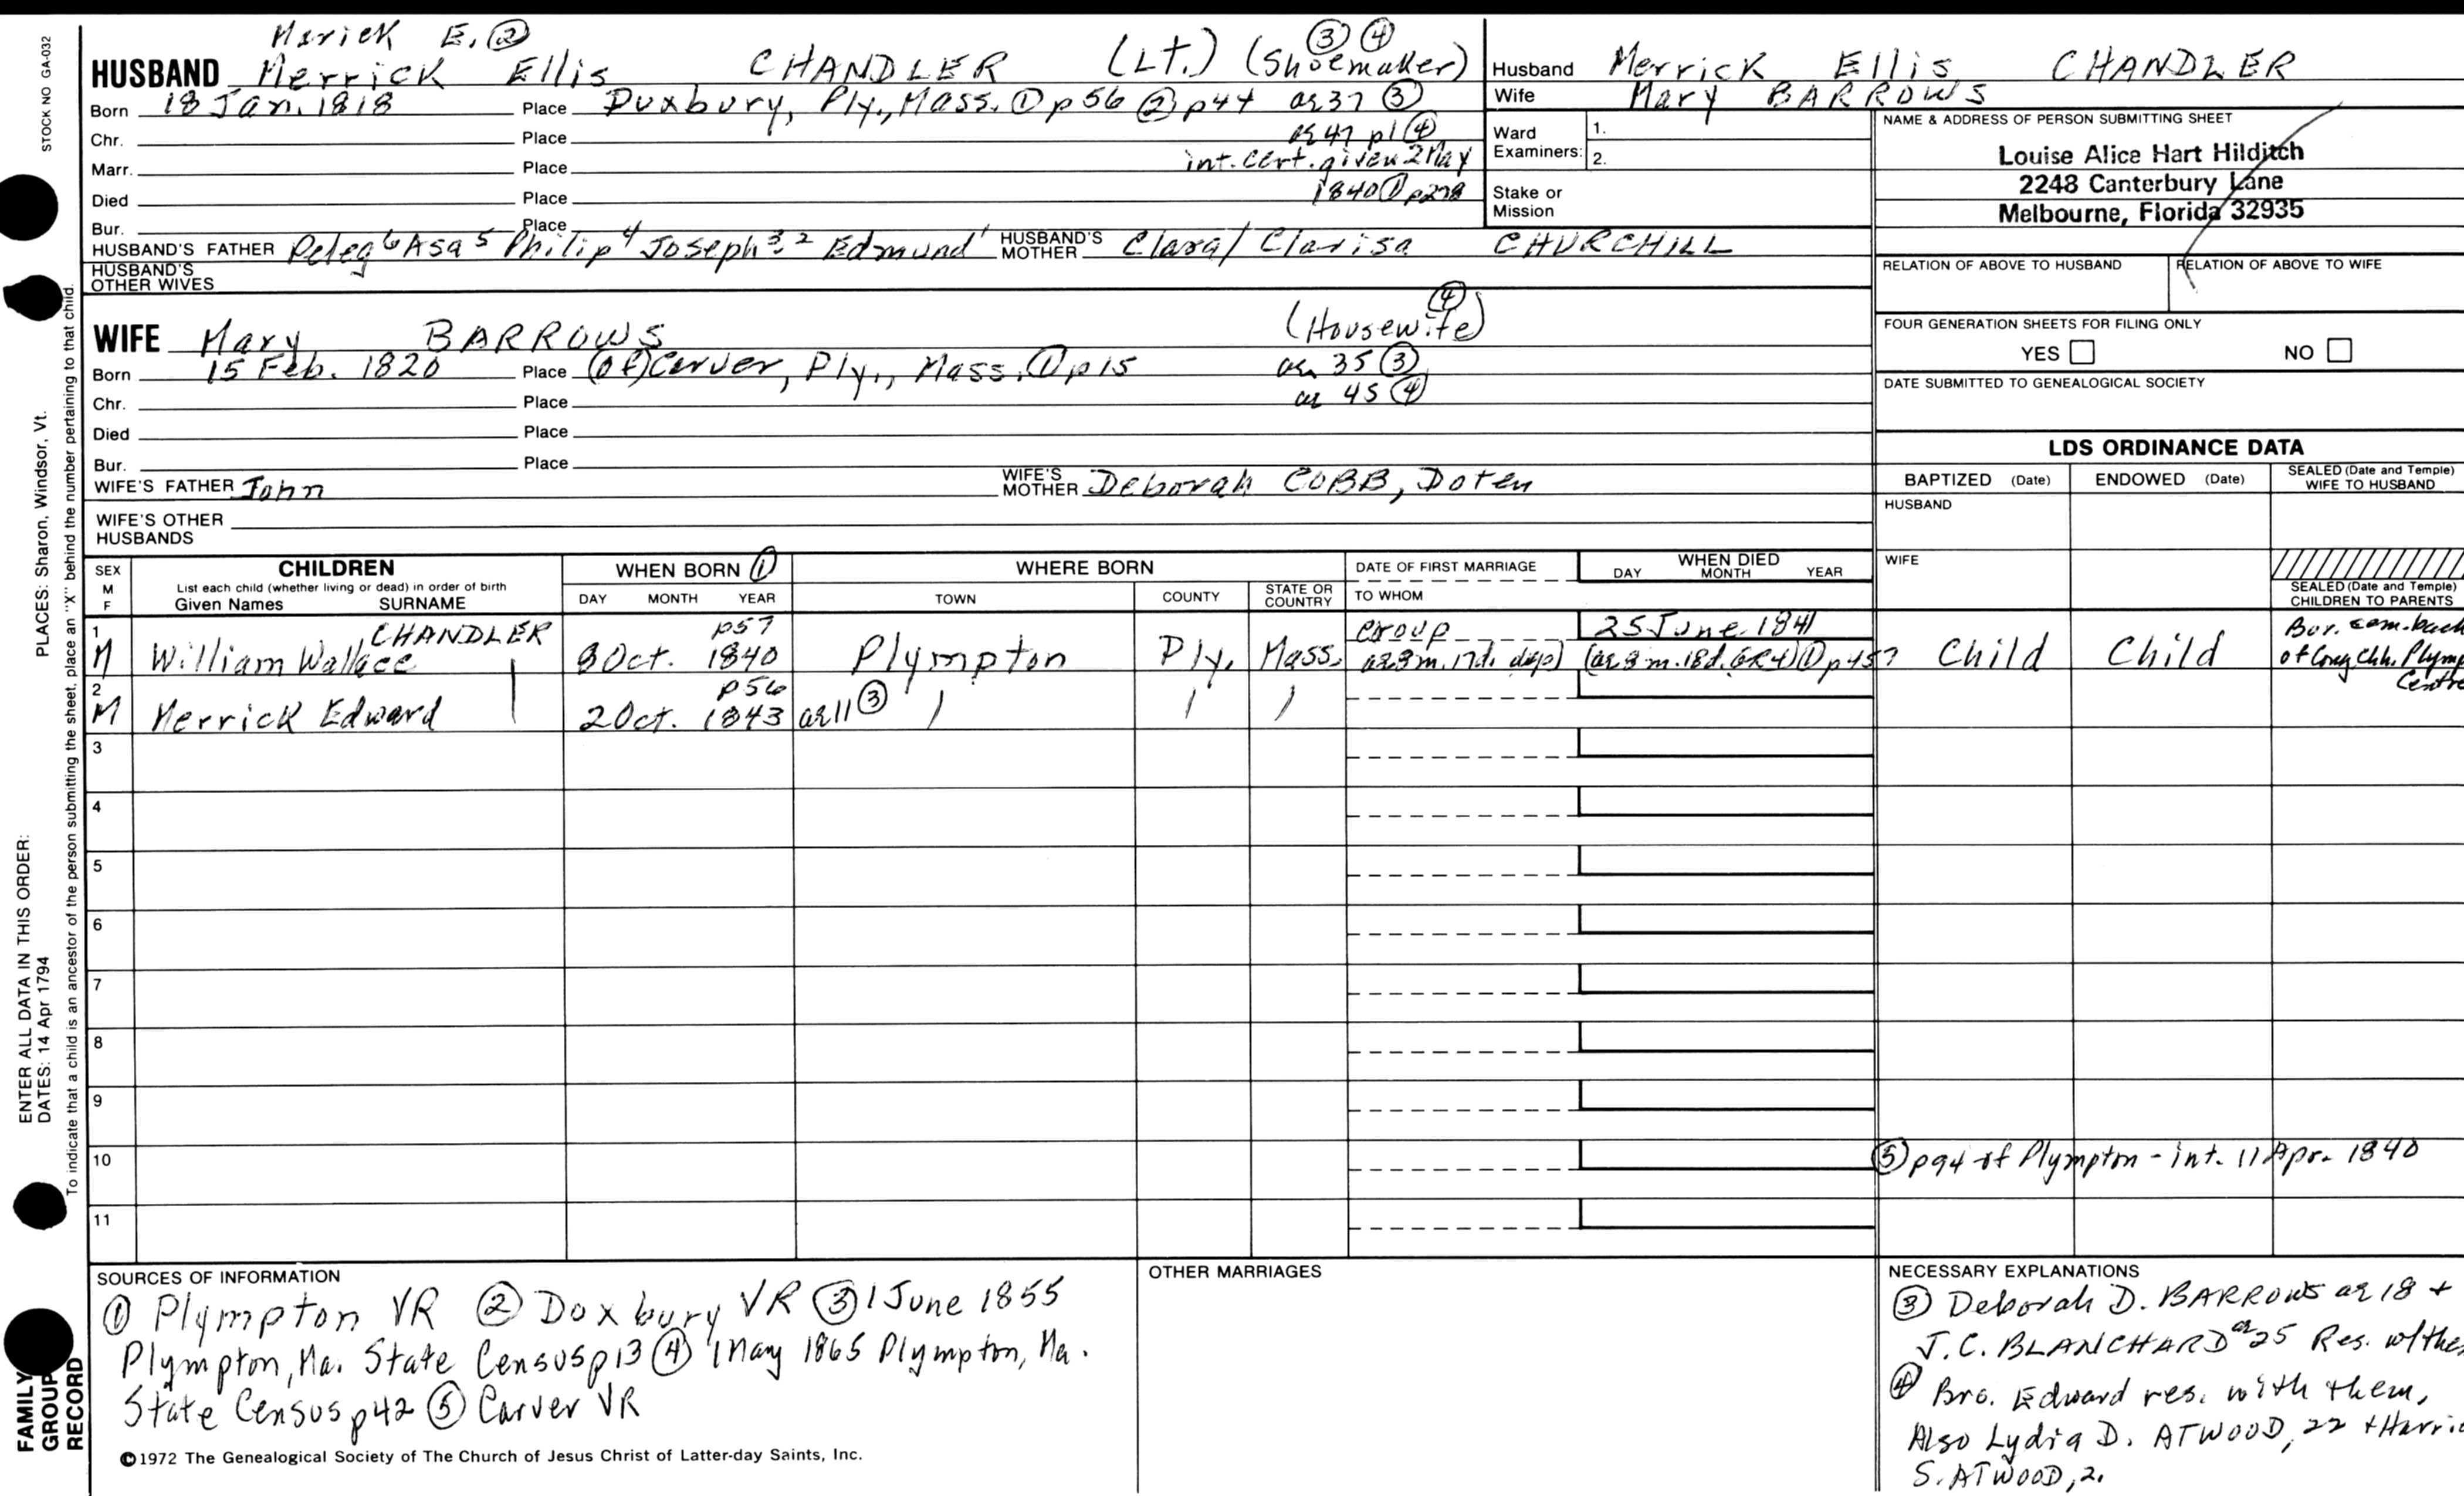 STOCK NO GA-032
Merick E. ②
HUSBAND Merrick Ellis CHANDLER (Lt.) (Shoemaker) ③ ④
Born 18 Jan. 1818 Place Duxbury, Ply., Mass. ① p56 ② p44 ae 37 ③
Chr. Place ae 47 p1 ④
Marr. Place int. cert. given 2 May
Died Place 1840 ① p278
Bur. Place
HUSBAND'S FATHER Peleg⁶ Asa⁵ Philip⁴ Joseph³,² Edmund¹ HUSBAND'S MOTHER Clara/ Clarisa CHURCHILL
HUSBAND'S OTHER WIVES
WIFE Mary BARROWS (Housewife) ④
Born 15 Feb. 1820 Place (of) Carver, Ply., Mass. ① p15 ae 35 ③
Chr. Place ae 45 ④
Died Place
Bur. Place
WIFE'S FATHER John WIFE'S MOTHER Deborah COBB, Doten
WIFE'S OTHER HUSBANDS
Husband Merrick Ellis CHANDLER
Wife Mary BARROWS
Ward Examiners: 1.
2.
Stake or Mission
NAME & ADDRESS OF PERSON SUBMITTING SHEET
Louise Alice Hart Hilditch
2248 Canterbury Lane
Melbourne, Florida 32935
RELATION OF ABOVE TO HUSBAND RELATION OF ABOVE TO WIFE
FOUR GENERATION SHEETS FOR FILING ONLY
YES NO
DATE SUBMITTED TO GENEALOGICAL SOCIETY
LDS ORDINANCE DATA
BAPTIZED (Date) ENDOWED (Date) SEALED (Date and Temple) WIFE TO HUSBAND
HUSBAND
WIFE
SEALED (Date and Temple) CHILDREN TO PARENTS
SEX M F CHILDREN WHEN BORN ① WHERE BORN DATE OF FIRST MARRIAGE WHEN DIED
List each child (whether living or dead) in order of birth
Given Names SURNAME DAY MONTH YEAR TOWN COUNTY STATE OR COUNTRY TO WHOM DAY MONTH YEAR
1 CHANDLER p57 croup 25 June 1841 Bur. cem. back
M William Wallace 8 Oct. 1840 Plympton Ply. Mass. ae 8 m. 17 d. dup) (ae 8 m. 18 d. GR4) ① p457 Child Child of Cong. Chh. Plymp
Centre
2 p56
M Merrick Edward 2 Oct. 1843 ae 11 ③
3
4
5
6
7
8
9
10 ⑤ p94 of Plympton - int. 11 Apr. 1840
11
SOURCES OF INFORMATION
① Plympton VR ② Duxbury VR ③ 1 June 1855
Plympton, Ma. State Census p13 ④ 1 May 1865 Plympton, Ma.
State Census p42 ⑤ Carver VR
©1972 The Genealogical Society of The Church of Jesus Christ of Latter-day Saints, Inc.
OTHER MARRIAGES
NECESSARY EXPLANATIONS
③ Deborah D. BARROWS ae 18 +
J.C. BLANCHARD ae 25 Res. w/the
④ Bro. Edward res. with them,
Also Lydia D. ATWOOD, 22 + Harri
S. ATWOOD, 2.
PLACES: Sharon, Windsor, Vt.
To indicate that a child is an ancestor of the person submitting the sheet, place an "X" behind the number pertaining to that child.
ENTER ALL DATA IN THIS ORDER:
DATES: 14 Apr 1794
FAMILY GROUP RECORD